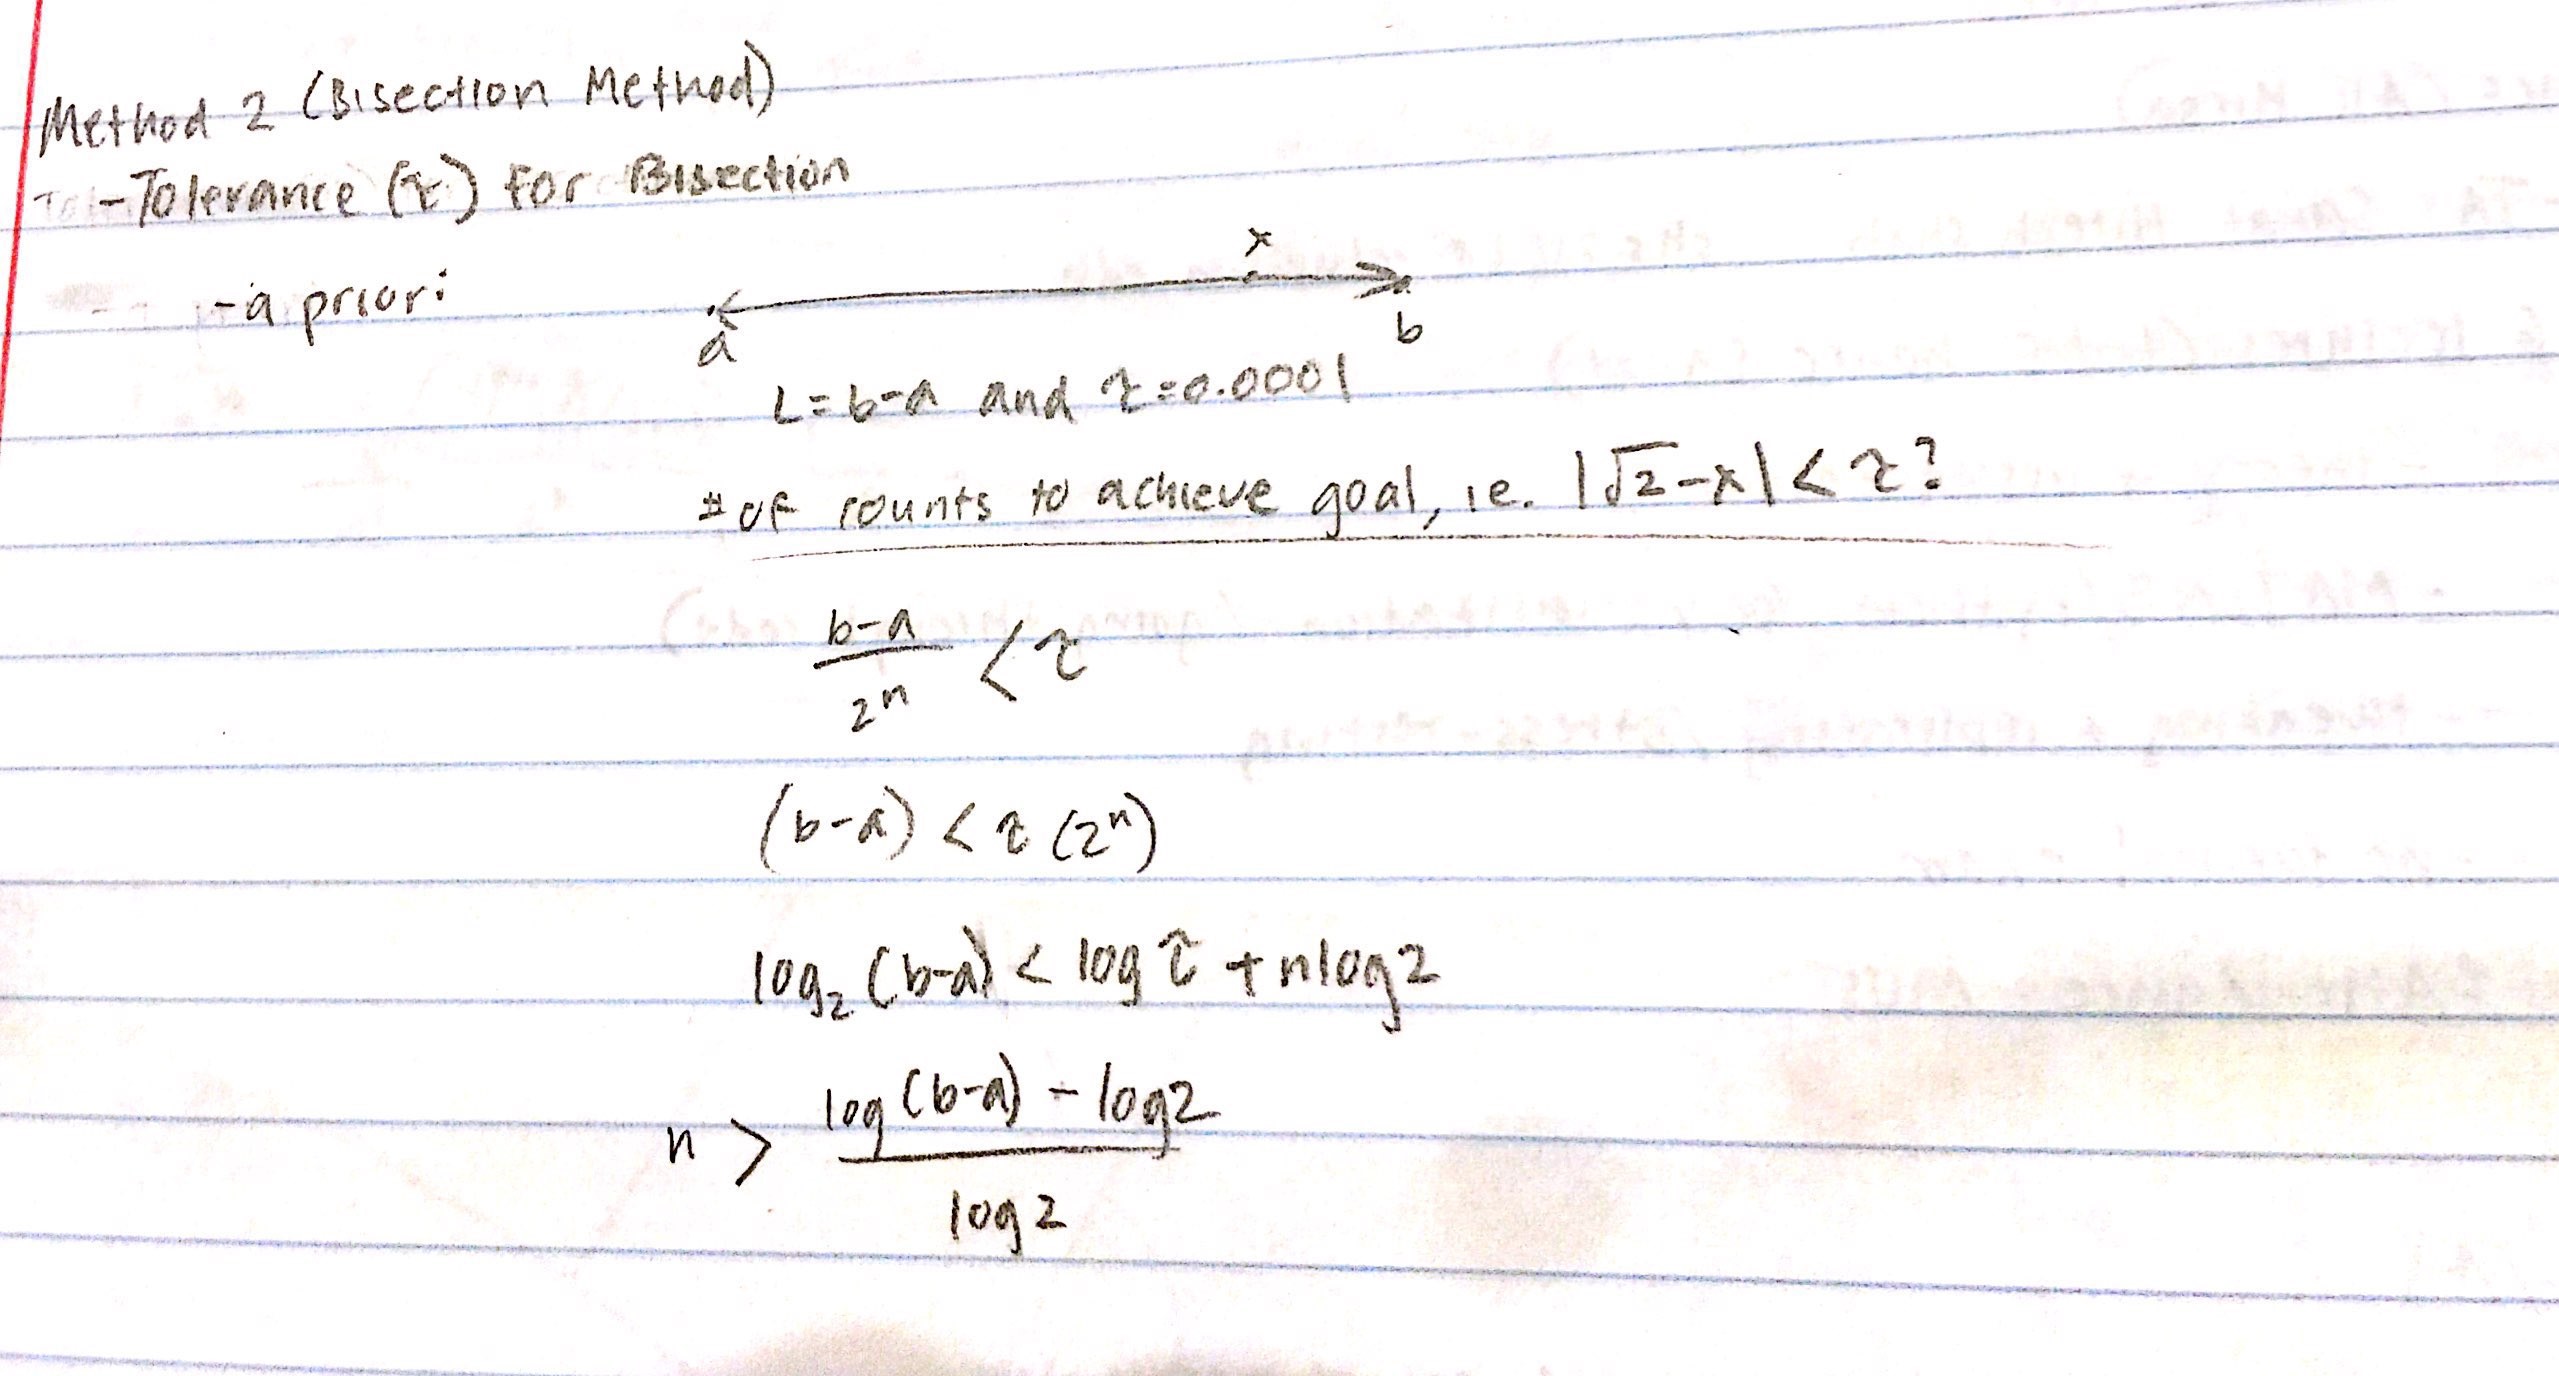 Method 2 (Bisection Method)
- Tolerance (τ) for Bisection
- a priori
x
a
b
L = b-a and τ = 0.0001
# of counts to achieve goal, ie. |√2 - x| < τ?
b-a
2ⁿ
< τ
(b-a) < τ (2ⁿ)
log₂ (b-a) < log τ + n log 2
n >
log (b-a) - log 2
log 2